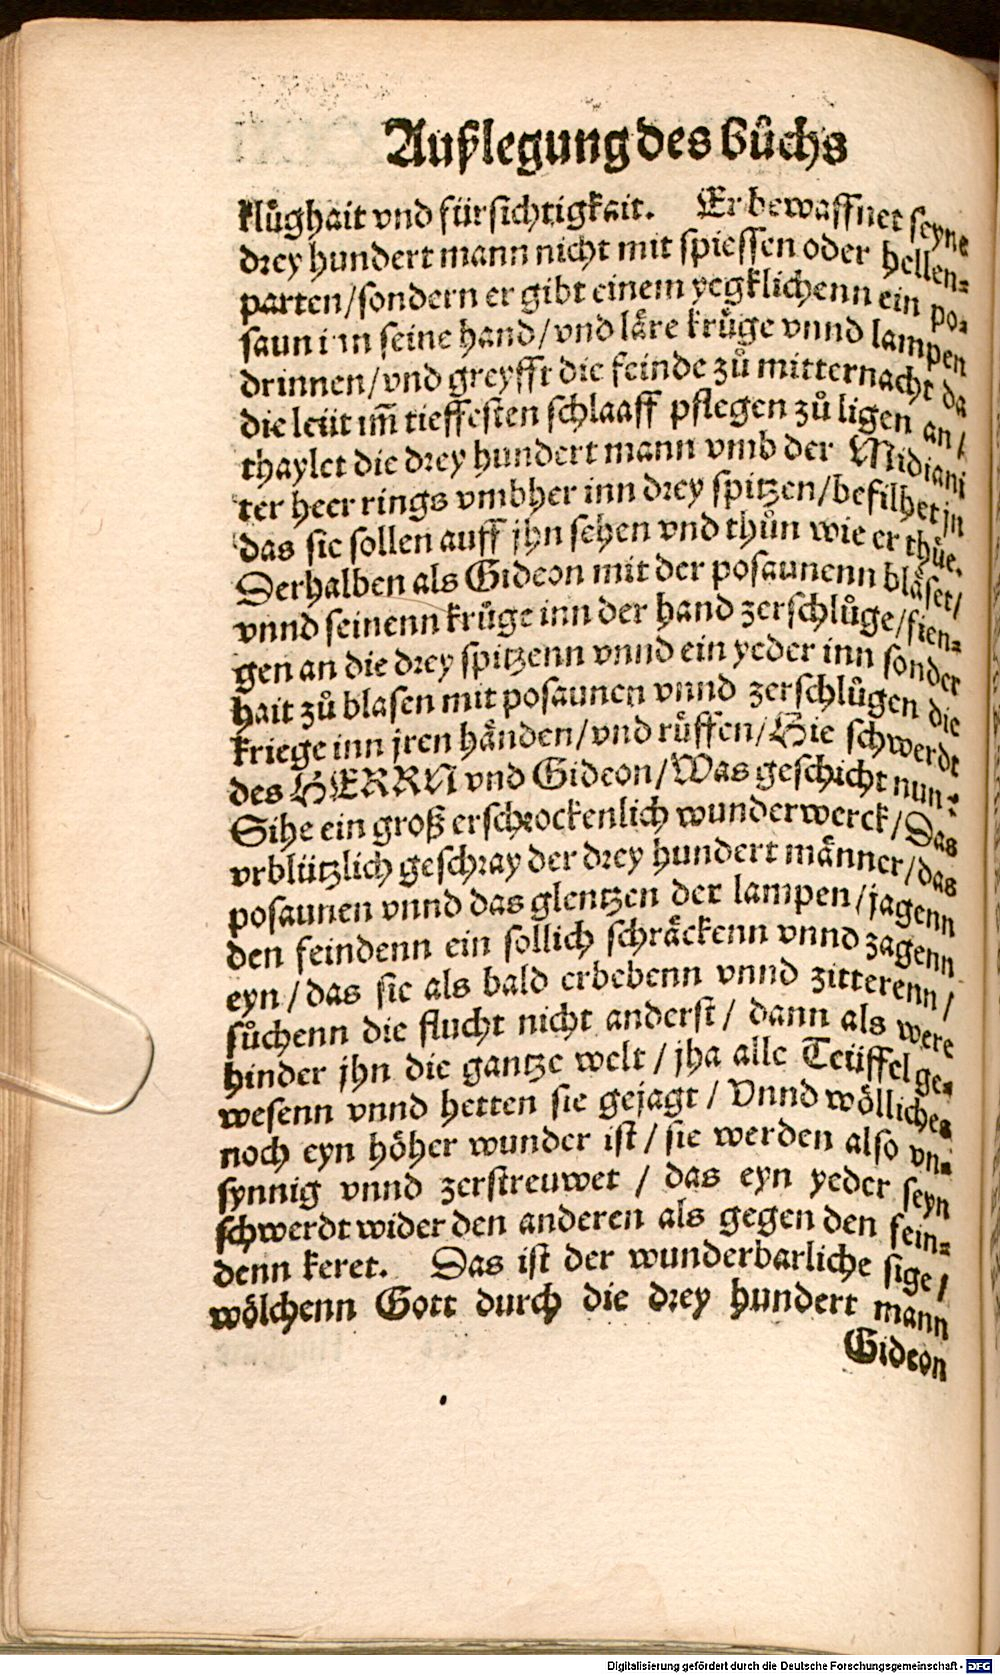 Außlegung des Bůchs
klůghait vnd fürsichtigkait. Er bewaffnet seyne
drey hundert mann nicht mit spiessen oder hellen-
parten/sondern er gibt einem yegklichenn ein po-
saun inn seine hand/vnd läre krůge vnnd lampen
drinnen/vnd greyfft die feinde zů mitternacht da
die leüt im̃ tieffesten schlaaff pflegen zů ligen an/
thaylet die drey hundert mann vmb der Midiani
ter heer rings vmbher inn drey spitzen/befilhet jn
das sie sollen auff jhn sehen vnd thůn wie er thůe.
Derhalben als Gideon mit der posaunenn bläset/
vnnd seinenn krůge inn der hand zerschlůge/fien-
gen an die drey spitzenn vnnd ein yeder inn sonder
hait zů blasen mit posaunen vnnd zerschlůgen die
kriege inn jren händen/vnd růffen/Hie schwerdt
des HERRN vnd Gideon/Was geschicht nun?
Sihe ein groß erschrockenlich wunderwerck/Das
vrblützlich geschray der drey hundert männer/das
posaunen vnnd das glentzen der lampen/jagenn
den feindenn ein sollich schräckenn vnnd zagenn
eyn/das sie als bald erbebenn vnnd zitterenn/
sůchenn die flucht nicht anderst/ dann als were
hinder jhn die gantze welt/jha alle Teüffel ge-
wesenn vnnd hetten sie gejagt/ Vnnd wölliches
noch eyn höher wunder ist/sie werden also vn-
synnig vnnd zerstreuwet / das eyn yeder seyn
schwerdt wider den anderen als gegen den fein-
denn keret. Das ist der wunderbarliche sige/
wölchenn Gott durch die drey hundert mann
Gideon
Digitalisierung gefördert durch die Deutsche Forschungsgemeinschaft - DFG